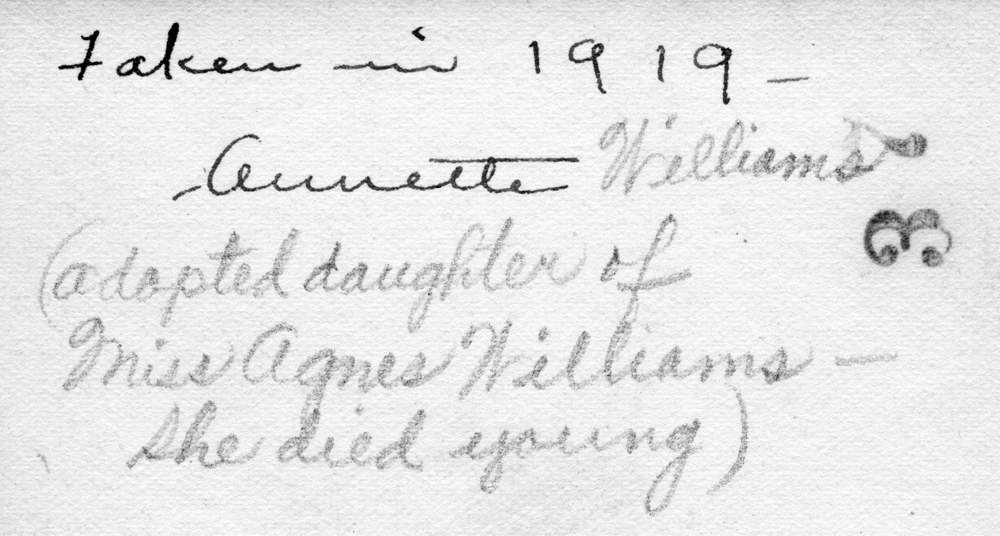 Taken in 1919 -
Annette Williams
(adopted daughter of
Miss Agnes Williams -
she died young)